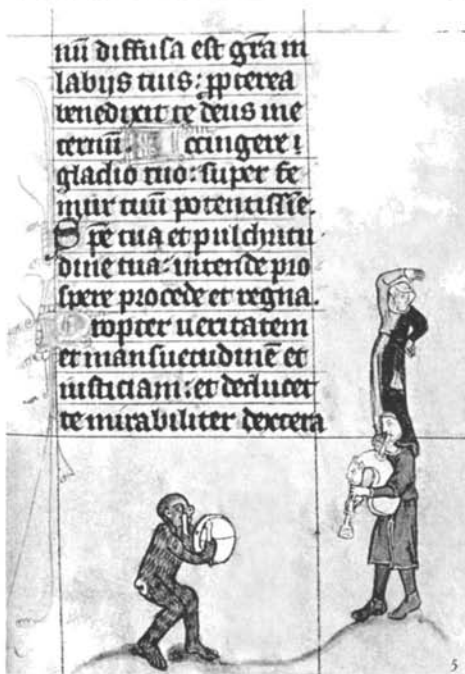 nū diffusa est grā in
labijs tuis: ꝓpterea
benedixit te deus in e
ternū. Accingere
gladio tuo: super fe
mur tuū potentissīe.
Spē tua et pulchritu
dine tua: intende pro
spere procede et regna.
Propter ueritatem
et mansuetudinē et
iusticiam: et deducet
te mirabiliter dextera
5